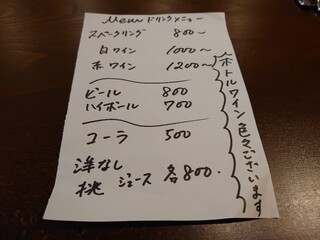 Menu ドリンクメニュー
スパークリング 800〜
白ワイン 1000〜
赤ワイン 1200〜
ビール 800
ハイボール 700
コーラ 500
洋なし
桃 ジュース 各800.
ボトルワイン色々ございます